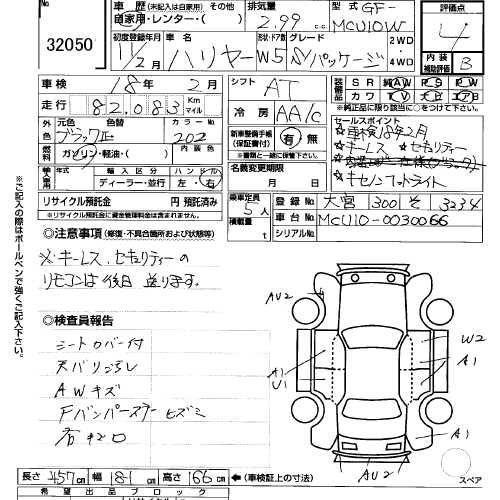 32050
車歴 (未記入は自家用) その他
自家用・レンター・( )
排気量
2.99 cc
型式
GF-
MCU10W
評価点
4
内装
補助評価
B
初度登録年月
11 / 2 月
車名
ハリヤー
形状・ドア数
W 5
グレード
Sパッケージ
2WD
4WD
車検 18年 2月
シフト AT
装備 SR AW PS PW
TV
走行 82,083 Km マイル
冷房 AA/C
※純正品に限り○をつけて下さい。
外色 元色 色替
ブラック
カラーNo.
202
新車整備手帳
(保証書付)
有・無
※書類と一緒に保管下さい。
セールスポイント
☆車検18年2月
☆キーレス ☆セキュリティ
☆キセノンヘッドライト
燃料 ガソリン・軽油・( ) 内装色
名義変更期限
月 日
輸入車用 年式 輸入区分 ハンドル
ディーラー・並行 左・右
リサイクル預託金 円 預託済み
※リサイクル預託金に資金管理料金は含まれません。
乗車定員 5人
積載量 t
登録No. 大宮 300 そ 3234
車台No. MCU10-0030066
シリアルNo.
※ご記入の際はボールペンで強くご記入下さい。
◎注意事項 (修復・不具合箇所および状態等)
※キーレス、セキュリティーの
リモコンは後日送ります。
◎検査員報告
シートロバー付
天バリ
AWキズ
AU2
A1
U1
W2
A1
A1
AU2
スペア
長さ 457 cm 幅 181 cm 高さ 166 cm ←(車検証上の寸法)
希望出品ブロック